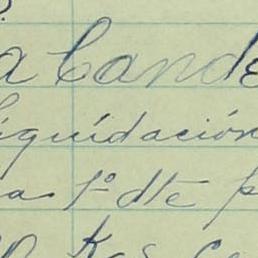 a Cande
liquidación
a. 1º dte p
Kgs. Ca